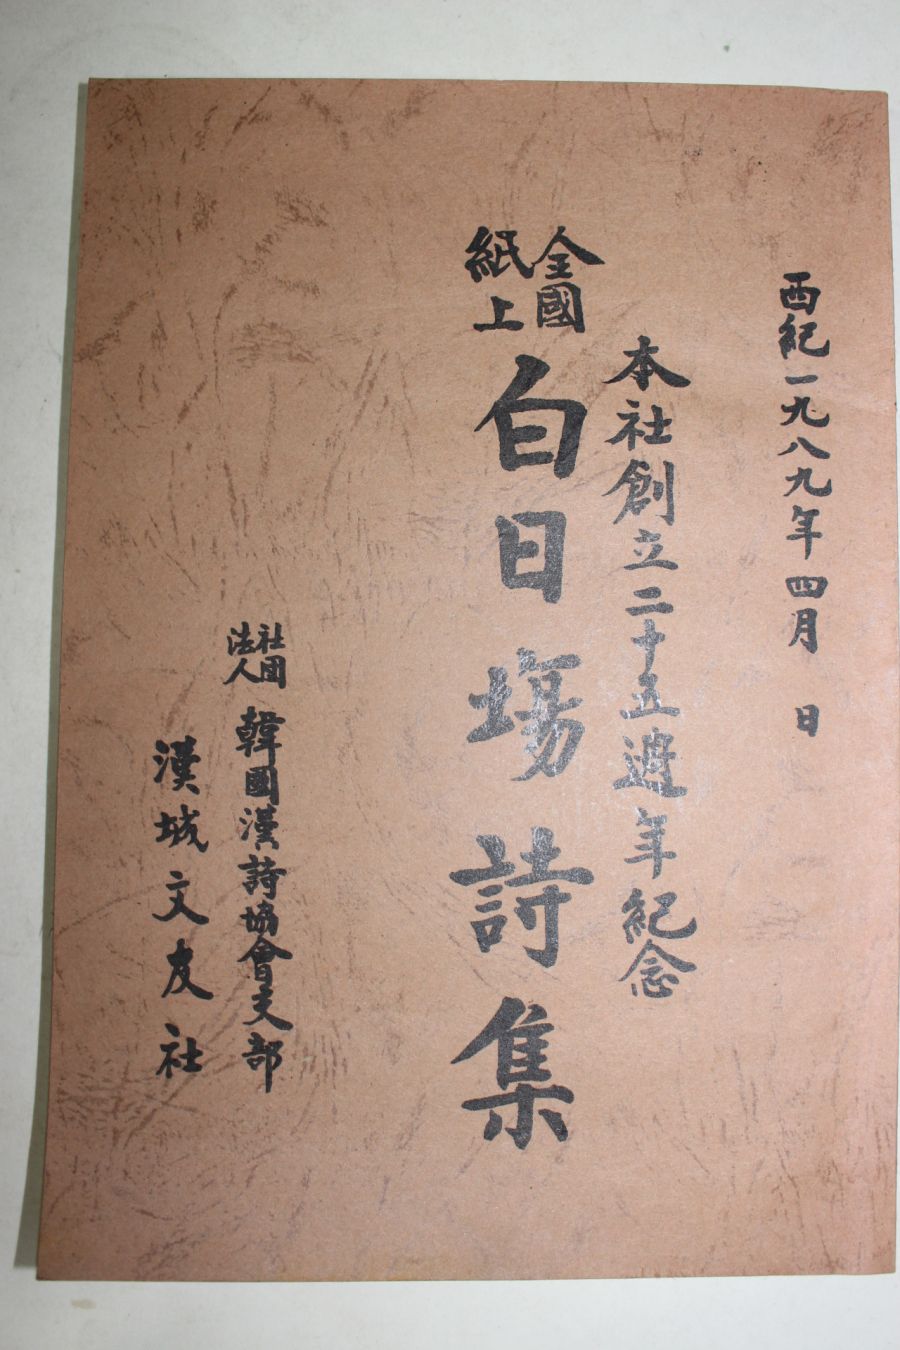 西紀一九八九年四月 日
本社創立二十五週年紀念
全國
紙上
白日場詩集
社团
法人
韓國漢詩協會支部
漢城文友社